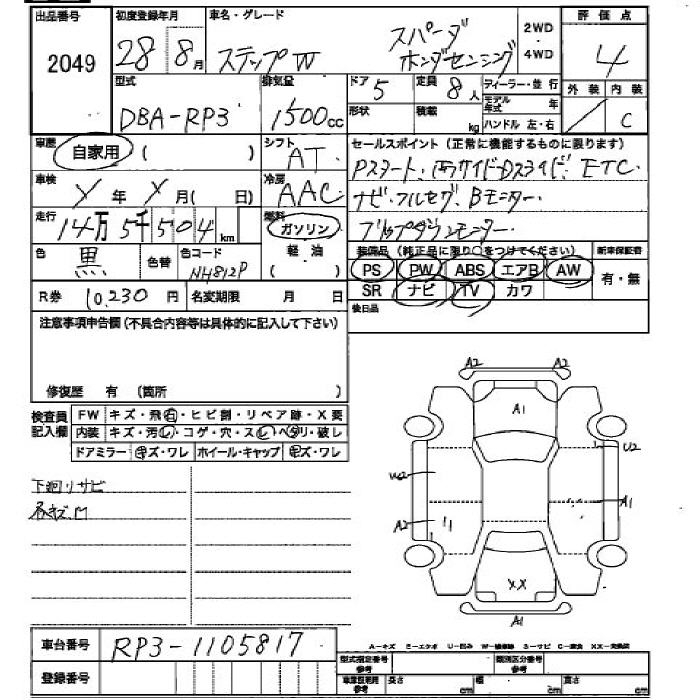 出品番号 初度登録年月 車名・グレード 評価点
2049 28 8月 ステップW スパーダ ホンダセンシング 2WD・4WD 4
型式 排気量 ドア 5 定員 8人 ディーラー・並行 外装 内装
DBA-RP3 1500cc 形状 積載 kg モデル年式 年 ハンドル 左・右 C
車歴 自家用 ( ) シフト AT
セールスポイント(正常に機能するものに限ります)
Pスタート、両サイドDスライド、ETC
車検 年 月( 日) 冷房 AAC
ナビ・フルセグ、Bモニター
走行 14万5千504km 燃料 ガソリン 軽・油 ( )
フリップダウンモニター
色 黒 色替 色コード NH812P
装備品(純正品に限り○をつけてください) 新車保証書
PS PW ABS エアB AW 有・無
SR ナビ TV カワ
R券 10,230円 名変期限 月 日 後日品
注意事項申告欄(不具合内容等は具体的に記入して下さい)
修復歴 有 (箇所 )
検査員記入欄 FW キズ・飛石・ヒビ割・リペア跡・X要
内装 キズ・汚レ・コゲ・穴・スレ・ヘタリ・破レ
ドアミラー キズ・ワレ ホイール・キャップ キズ・ワレ
下廻りサビ
A2 A2
A1
U2
A1
A2
XX
A1
車台番号 RP3-1105817
A-キズ E-エクボ U-凹み S-サビ C-腐食 XX-交換済
登録番号 型式指定番号 参考 類別区分番号 参考
長さ cm 幅 cm 高さ cm